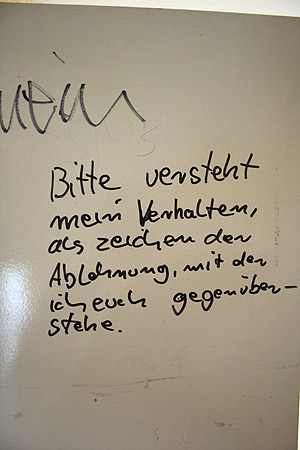 nein
Bitte versteht
mein Verhalten,
als zeichen der
Ablehnung, mit der
ich euch gegenüber-
stehe.